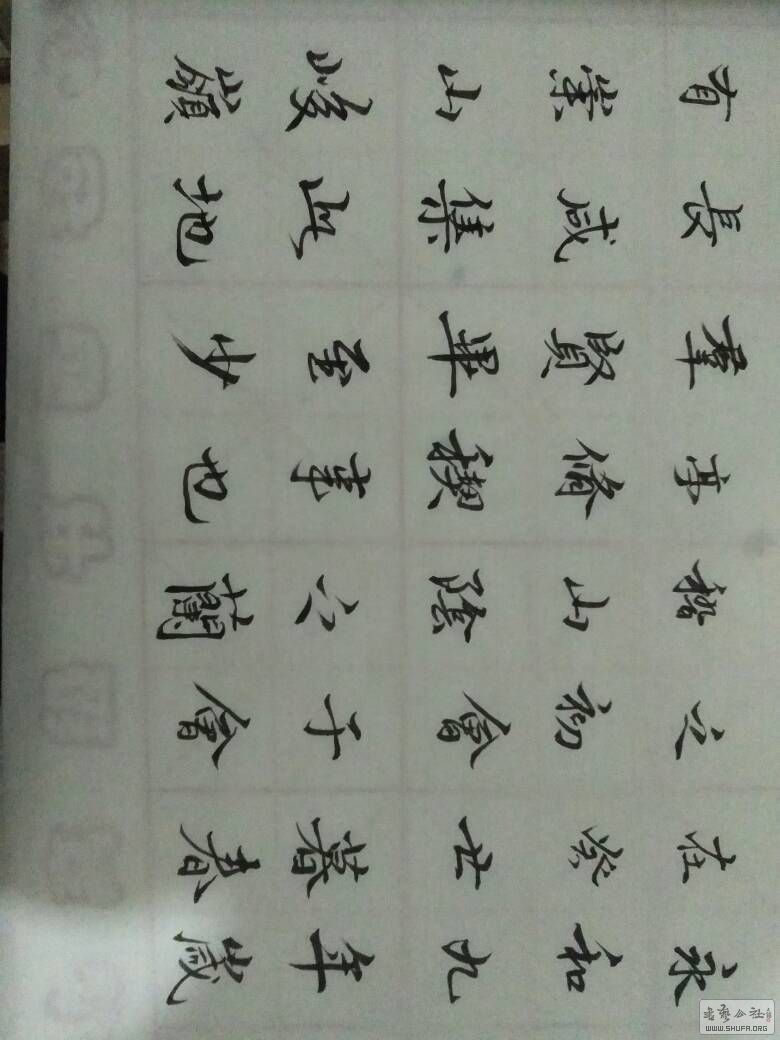 永和九年歲
在癸丑暮春
之初會于會
稽山陰之蘭
亭脩禊事也
羣賢畢至少
長咸集此地
有崇山峻嶺
書藝公社
WWW.SHUFA.ORG